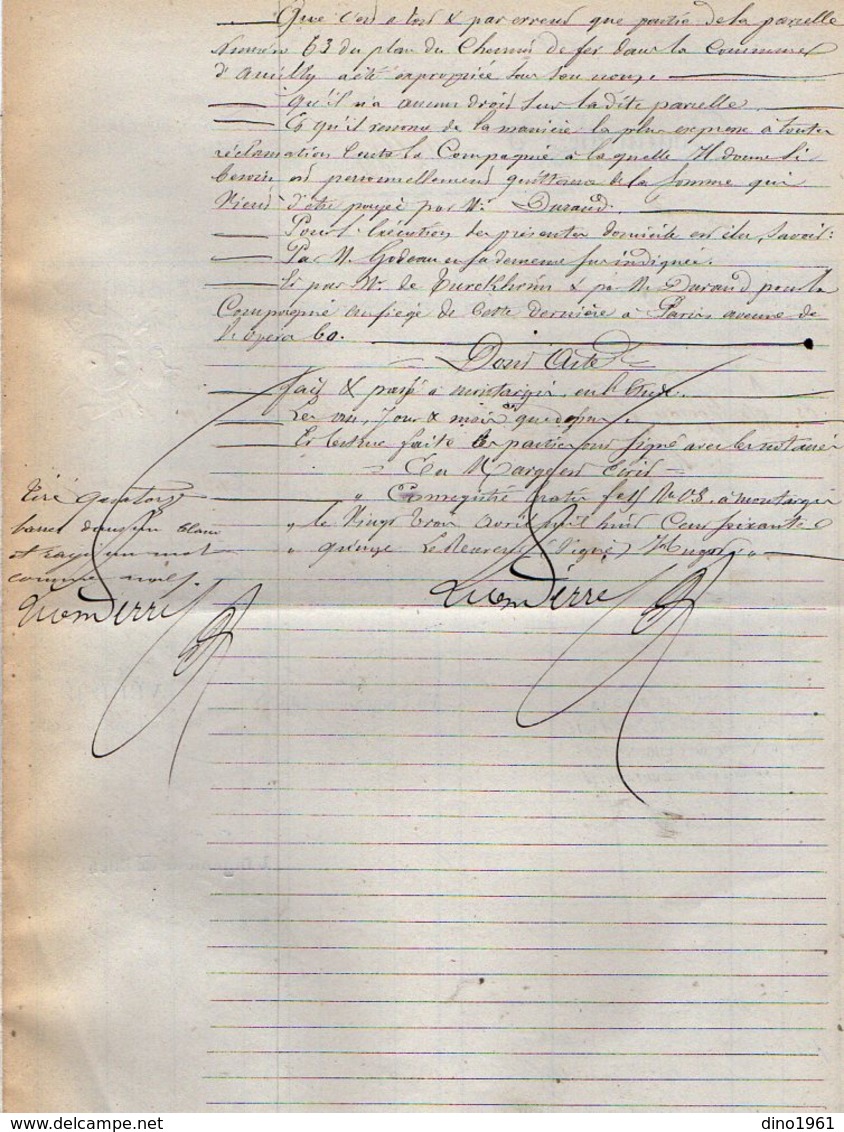 Que c'est à tort & par erreur que partie de la parcelle
Numéro 63 du plan du Chemin de fer dans la Commune
d'Amilly a été expropriée sur son nom.
qu'il n'a aucun droit sur la dite parcelle.
Et qu'il renonce de la manière la plus expresse à toute
réclamation contre la Compagnie à laquelle il donne si
besoin est personnellement quittance de la somme qui
vient d'être payée par Mr Durand.
Pour l'exécution des présentes domicile est élu, savoir:
Par M. Godeau en sa demeure sus indiquée.
Et par Mr. de Turckheim & par M. Durand pour la
Compagnie au siège de cette dernière à Paris avenue de
l'opéra 60.
Dont Acte
fait & passé à Montargis, en l'Etude.
Les an, Jour & mois que dessus.
Et lecture faite les parties ont signé avec les notaires
En Marge est écrit
" Enregistré gratis fo 1 Vo C 3. à Montargis
" le Vingt trois avril mil huit Cent soixante
" quinze Le Receveur (Signé) Hugot "
Tiré quatorze
barres dans un blanc
et rayé un mot
comme nuls.